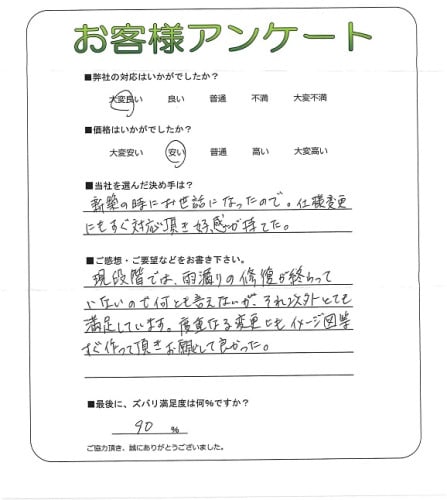 お客様アンケート
■弊社の対応はいかがでしたか？
大変良い 良い 普通 不満 大変不満
■価格はいかがでしたか？
大変安い 安い 普通 高い 大変高い
■当社を選んだ決め手は？
新築の時にお世話になったので。仕様変更
にもすぐ対応頂き好感が持てた。
■ご感想・ご要望などをお書き下さい。
現段階では、雨漏りの修復が終わって
いないので何とも言えないが、それ以外とても
満足しています。度重なる変更にも イメージ図等
すぐ作って頂きお願いして良かった。
■最後に、ズバリ満足度は何％ですか？
90 ％
ご協力頂き、誠にありがとうございました。